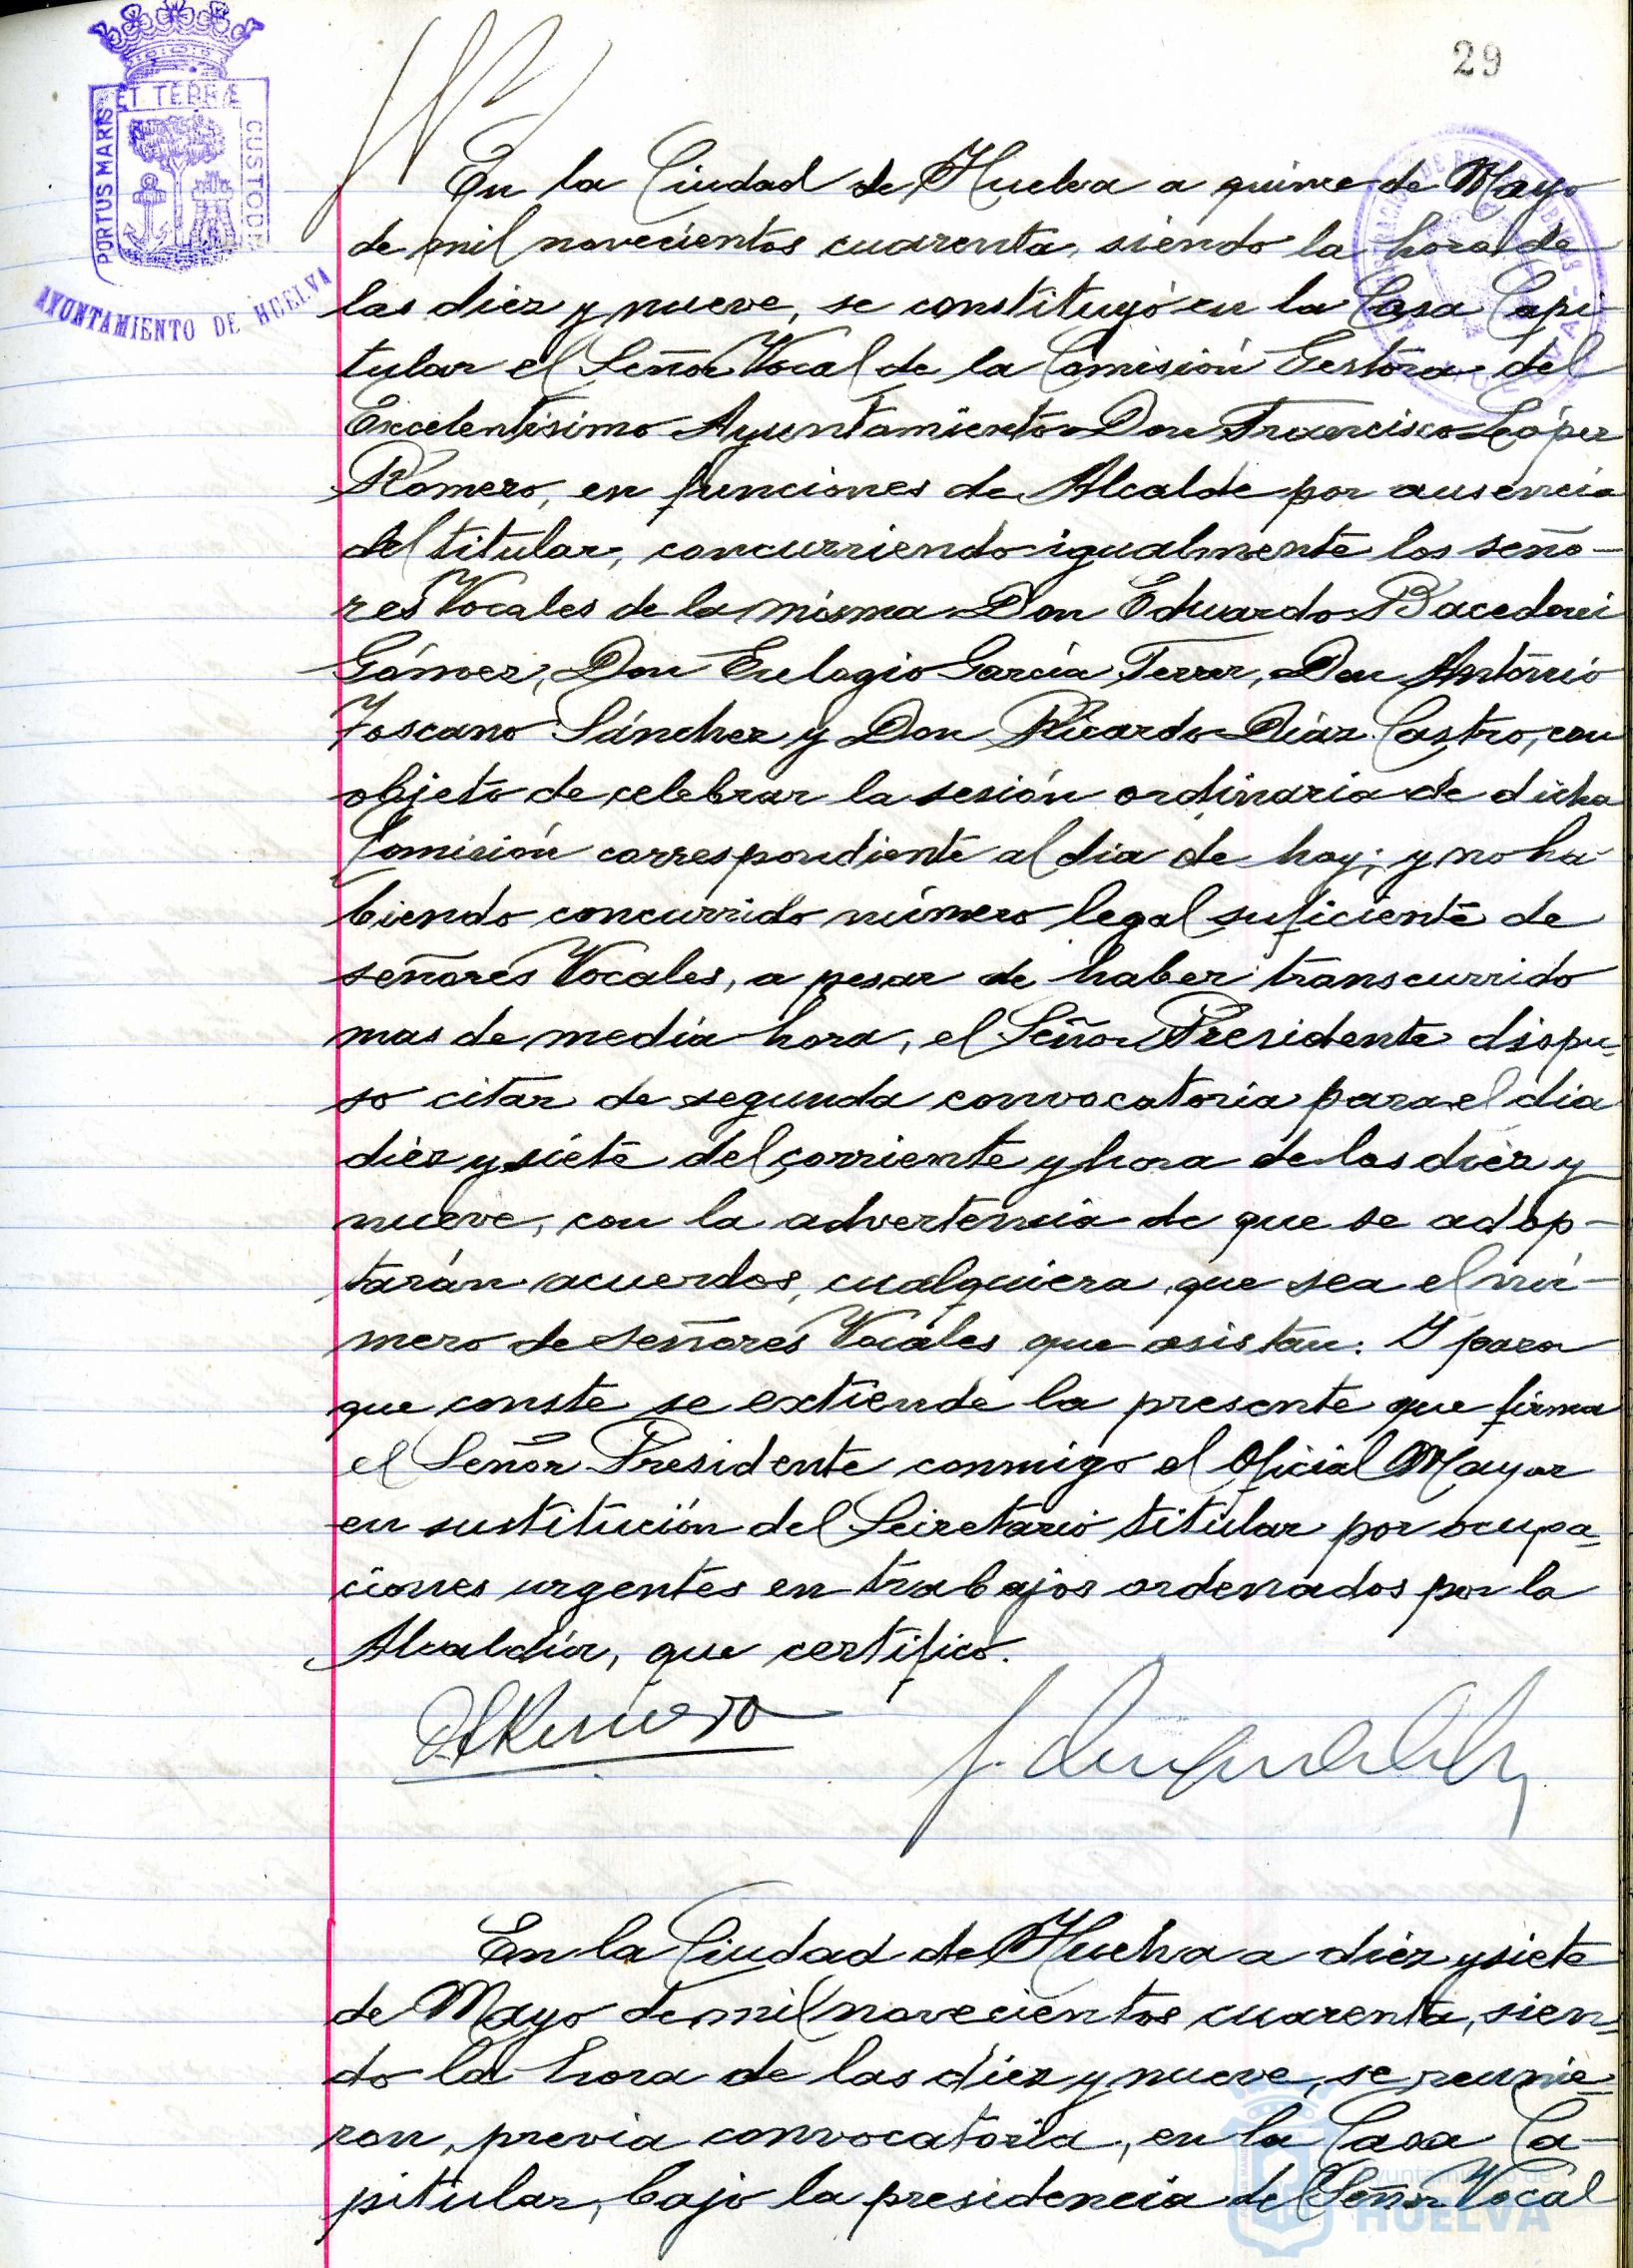 29
ET TERRÆ
PORTUS MARIS
CUSTODIA
AYUNTAMIENTO DE HUELVA
En la Ciudad de Huelva a quince de Mayo
de mil novecientos cuarenta, siendo la hora de
las diez y nueve, se constituyó en la Casa Capi-
tular el Señor Vocal de la Comisión Gestora del
Excelentísimo Ayuntamiento Don Francisco López
Romero, en funciones de Alcalde por ausencia
del titular, concurriendo igualmente los seño-
res Vocales de la misma Don Eduardo
Gómez, Don Eulogio García Terrer, Don Antonio
Toscano Sánchez y Don Ricardo Díaz Castro, con
objeto de celebrar la sesión ordinaria de dicha
Comisión correspondiente al dia de hoy; y no ha-
biendo concurrido número legal suficiente de
señores Vocales, a pesar de haber transcurrido
mas de media hora, el Señor Presidente dispu-
so citar de segunda convocatoria para el dia
diez y siete del corriente y hora de las diez y
nueve, con la advertencia de que se adop-
tarán acuerdos, cualquiera que sea el nú-
mero de señores Vocales que asistan. Y para
que conste se extiende la presente que firma
el Señor Presidente conmigo el Oficial Mayor
en sustitución del Secretario titular por ocupa-
ciones urgentes en trabajos ordenados por la
Alcaldía, que certifico.
En la Ciudad de Huelva a diez y siete
de Mayo de mil novecientos cuarenta, sien-
do la hora de las diez y nueve, se reunie-
ron, previa convocatoria, en la Casa Ca-
pitular, bajo la presidencia del Señor Vocal
Ayuntamiento de
HUELVA